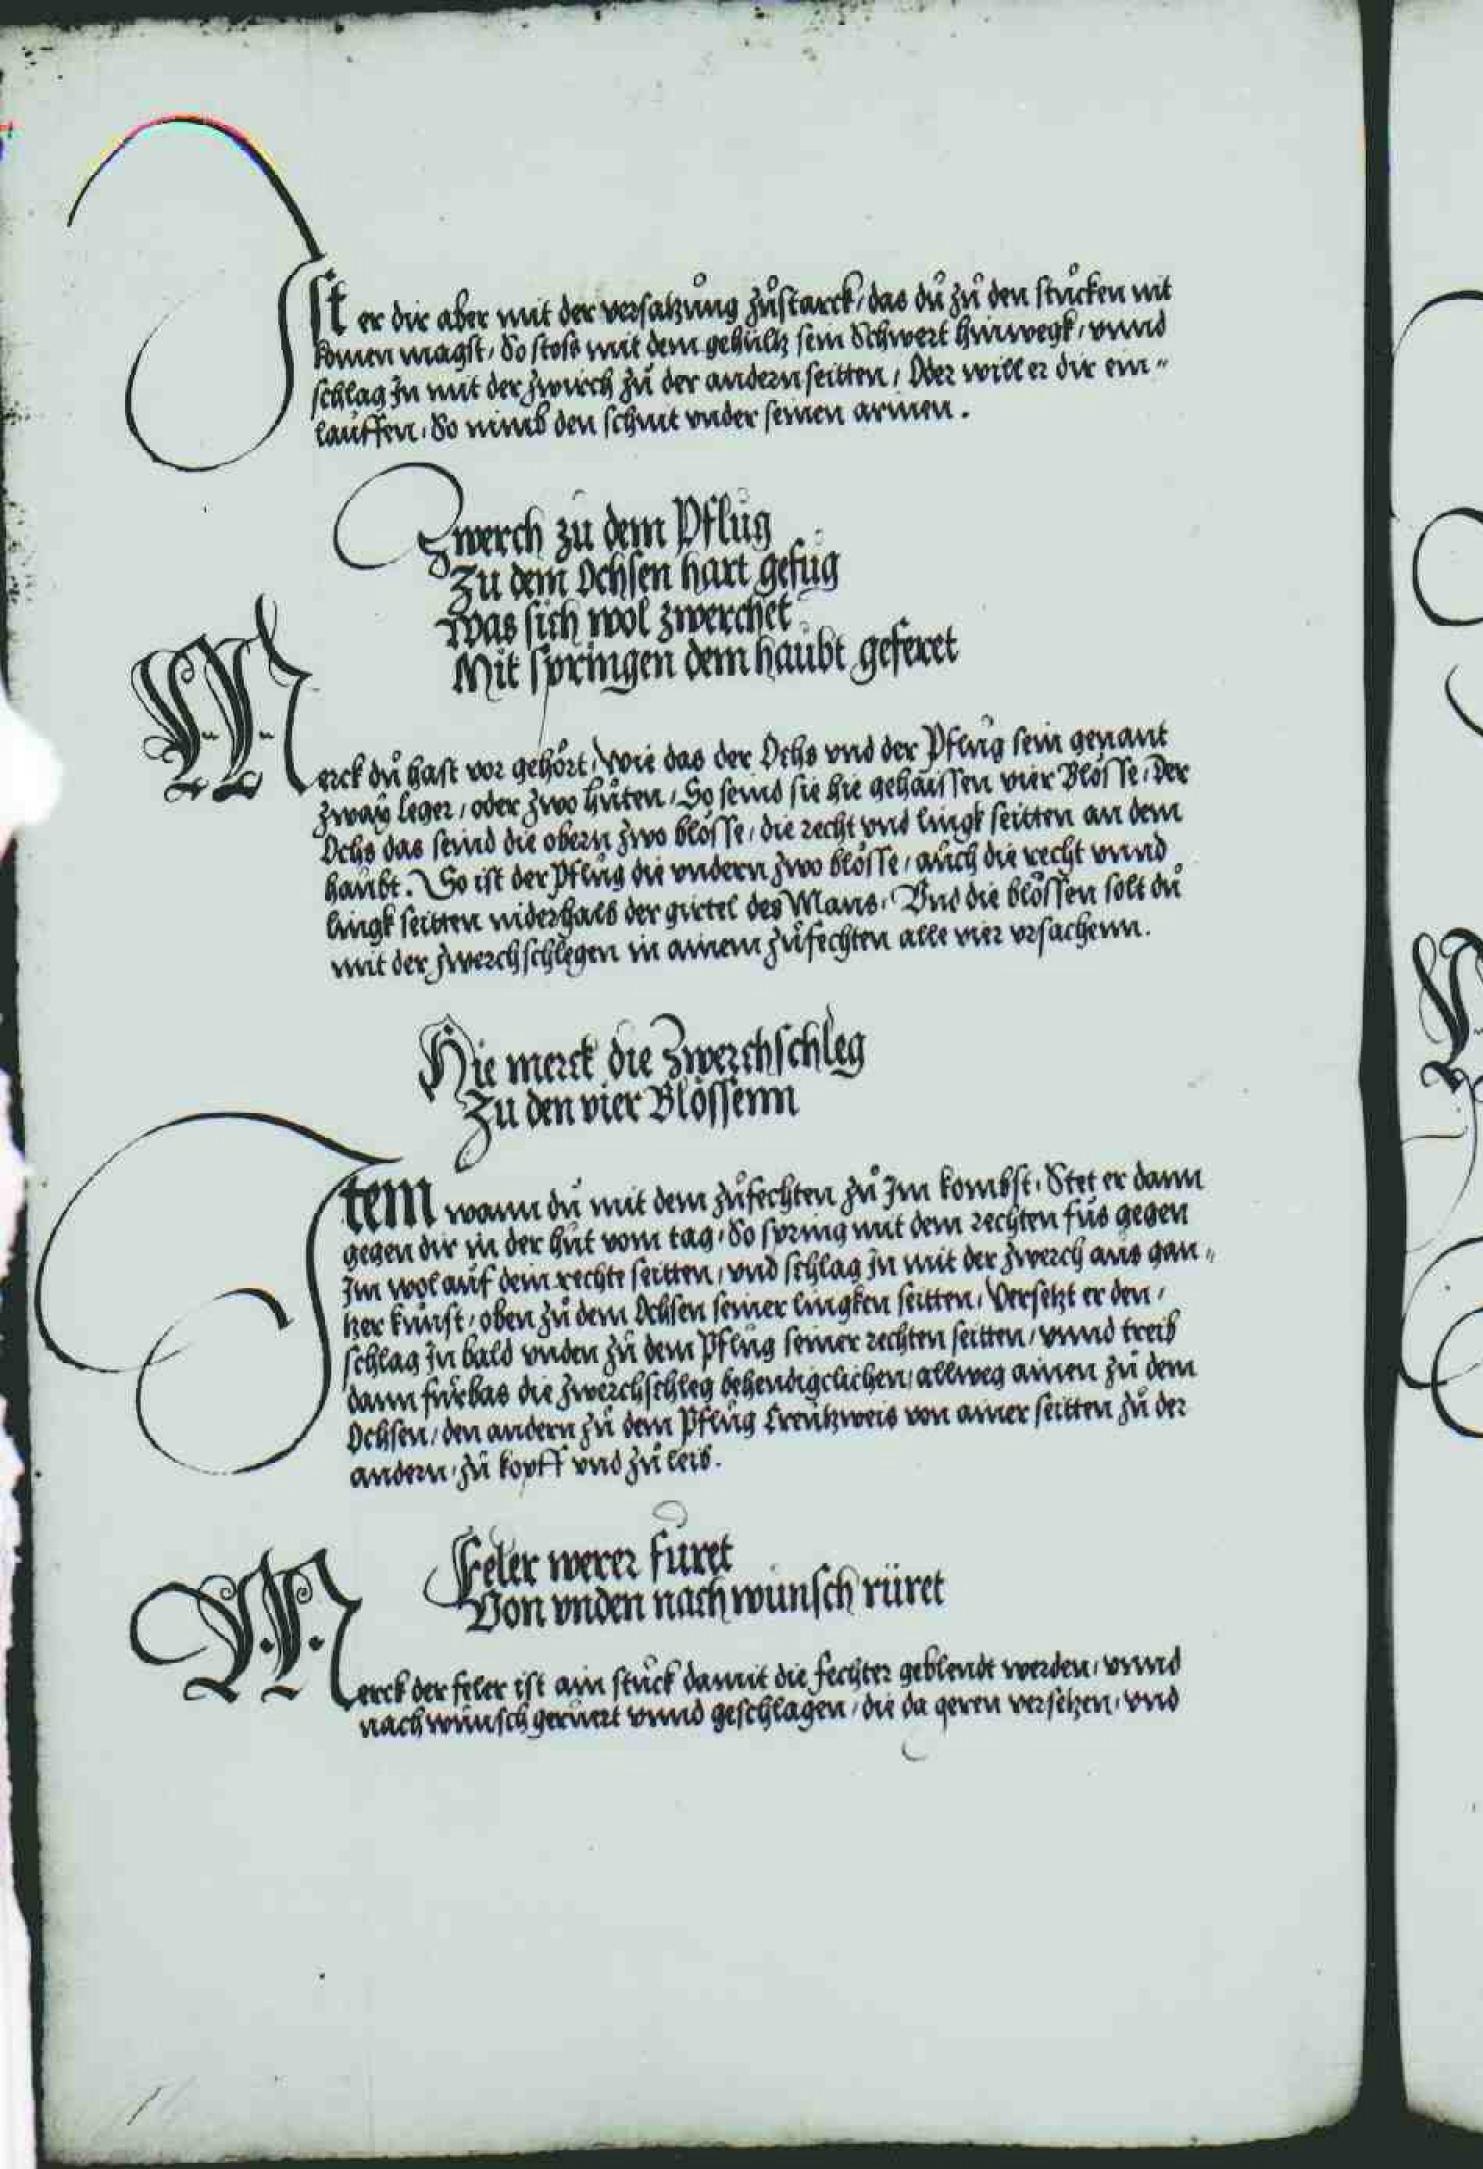 Ist er dir aber mit der versatzůng zůstarck, das dů zů den stůcken nit
komen magst, So stoss mit dem gehültz sein Schwert hinwegk, vnnd
schlag In mit der zwirch zů der andern seitten, Oder will er dir ein-
lauffen, So nimb den schnit vnder seinen armen.
Zwerch zu dem Pflůg
Zu dem Ochsen hart gefůg
Was sich wol zwerchet
Mit springen dem haubt geferet
Merck dů hast vor gehört, Wie das der Ochs vnd der Pflůg sein genant
zway leger, oder zwo hůten, So seind sie hie gehaissen vier Blösse, Der
Ochs das seind die obern zwo blösse, die recht vnd lingk seitten an dem
haubt. So ist der Pflůg die vndern zwo blösse, aůch die recht vnnd
lingk seitten niderhalb der girtel des Mans, Vnd die blössen solt dů
mit der zwerchschlegen in ainem zůfechten alle vier vrsachenn.
Hie merck die Zwerchschleg
Zu den vier Blössenn
Item wann dů mit dem zůfechten zů Im kombst, Stet er dann
gegen dir in der hůt vom tag, So spring mit dem rechten fůs gegen
Im wol auf dein rechte seitten, vnd schlag in mit der zwerch aus gan-
tzer kůnst, oben zů dem Ochsen seiner lingken seitten, Versetzt er den,
schlag In bald vnden zů dem Pflůg seiner rechten seitten, vnnd treib
dann fürbas die zwerchschleg behendigclichen, allweg ainen zů dem
Ochsen, den andern zů dem Pflůg Creützweis von ainer seitten zů der
andern, zů kopff vnd zů leib.
Feler werer füret
Von vnden nach wunsch rüret
Merck der feler ist ain stůck damit die fechter geblendt werden, vnnd
nach wůnsch gerüert vnnd geschlagen, die da geren versetzen, vnd